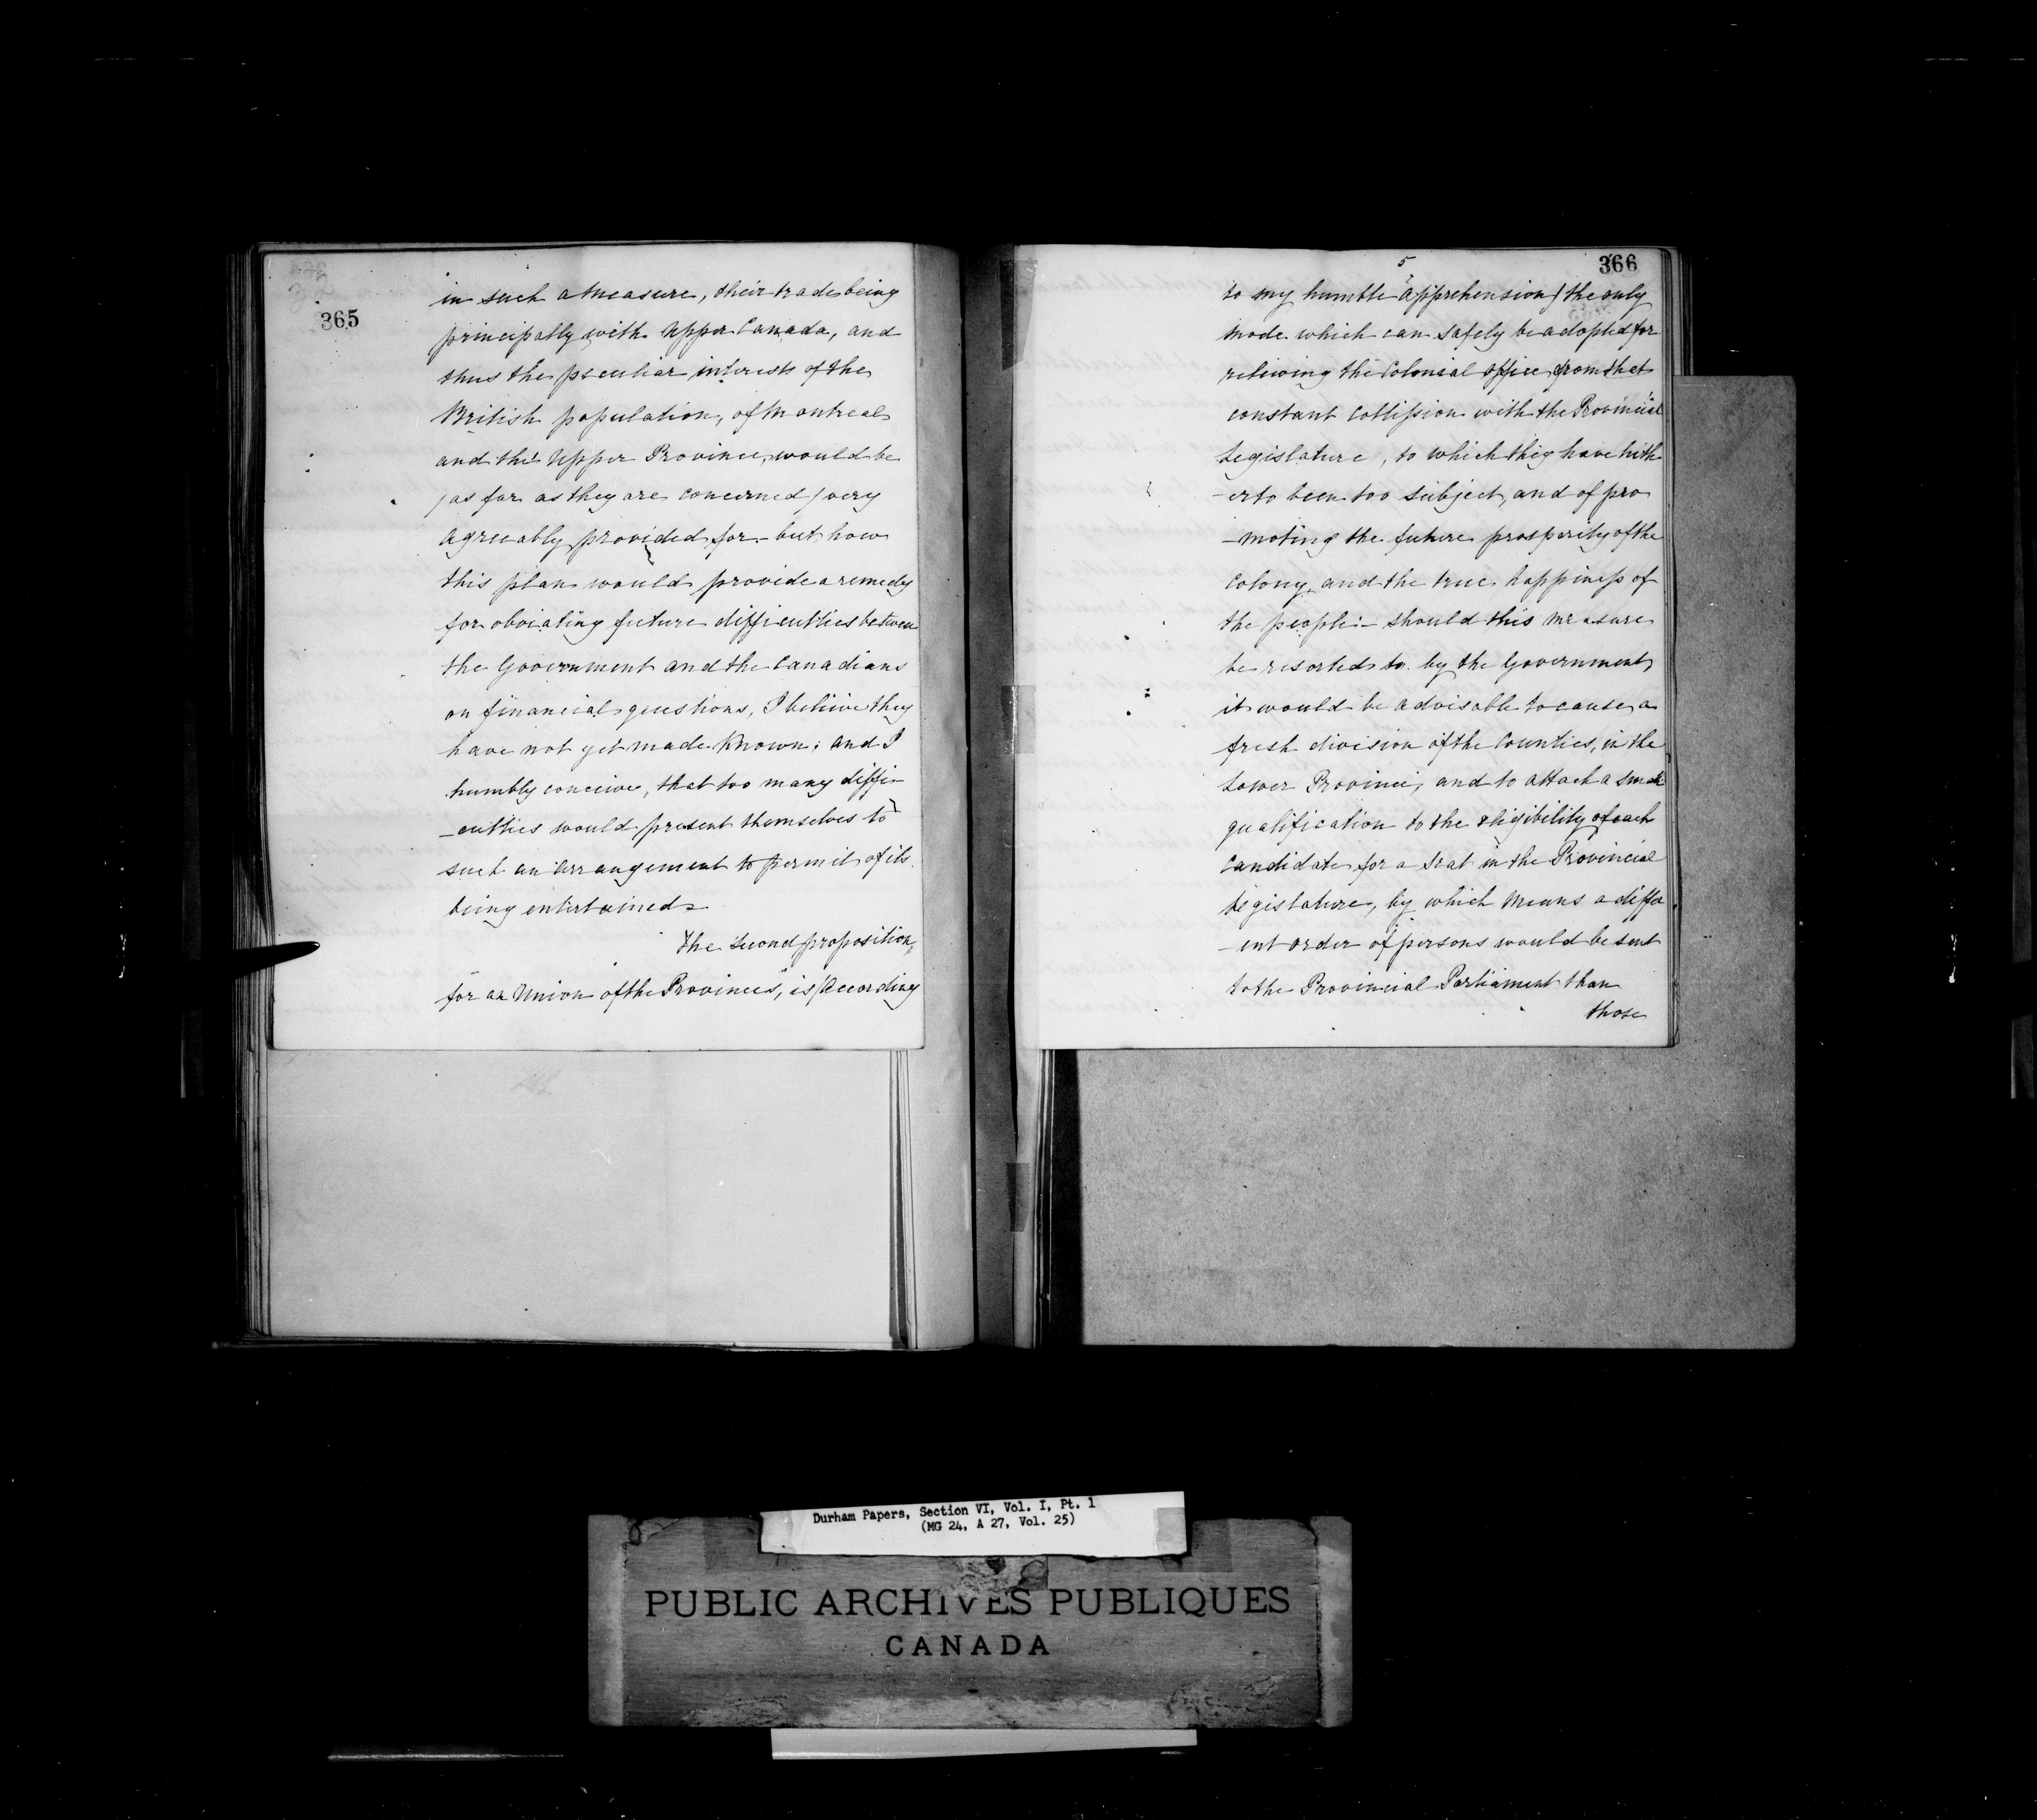 365
in such a measure, their trade being
principally with Upper Canada, and
thus the peculiar interests of the
British population, of Montreal
and the Upper Province, would be
(as far as they are concerned) very
agreeably provided for - but how
this plan would provide a remedy
for obviating future difficulties between
the Government and the Canadians
on financial questions, I believe they
have not yet made known; and I
humbly conceive, that too many diffi-
-culties would present themselves to
such an arrangement to permit of its
being entertained
The second proposition,
for an Union of the Provinces, is (according
5
366
to my humble apprehension) the only
mode which can safely be adopted for
relieving the Colonial office from that
constant collission with the Provincial
Legislature, to which they have hith
-erto been too subject, and of pro
-moting the future prosperity of the
Colony, and the true happiness of
the people: - should this measure
be resorted to by the Government,
it would be advisable to cause a
fresh division of the Counties, in the
Lower Province, and to attach a small
qualification to the eligibility of each
candidate for a seat in the Provincial
Legislature, by which means a differ
-ent order of persons would be sent
to the Provincial Parliament than
those
Durham Papers, Section VI, Vol. I, Pt. 1
(MG 24, A 27, Vol. 25)
PUBLIC ARCHIVES PUBLIQUES
CANADA